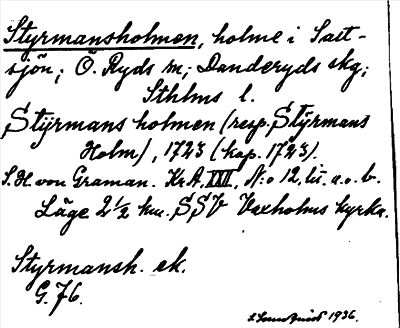 Styrmansholmen, holme i Salt-
sjön; Ö. Ryds sn; Danderyds skg;
Sthlms l.
Styrmans holmen (resp. Styrmans
Holm), 1723 (kop. 1723).
S. H. von Graman. Kr. A. XXII, N:o 12, lit. a. o. b.
Läge 2 1/2 km. SSV Vaxholms kyrka.
Styrmansh. ek.
G. 76.
1936.